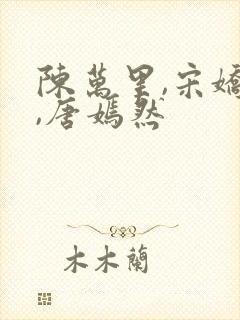 陳萬里,宋嬌
,唐嫣然
木木蘭